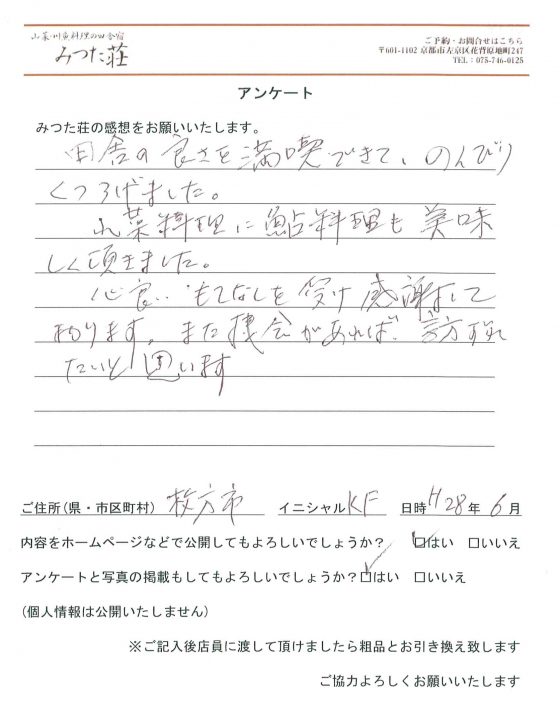 山菜・川魚料理の田舎宿
みつた荘
ご予約・お問合せはこちら
〒601-1102 京都市左京区花脊原地町247
TEL：075-746-0125
アンケート
みつた荘の感想をお願いいたします。
田舎の良さを満喫できて、のんびり
くつろげました。
山菜料理に鮎料理も美味
しく頂きました。
心良いもてなしを受け感謝して
おります。また機会があれば、訪ずれ
たいと思います
ご住所(県・市区町村) 枚方市 イニシャル KF 日時 H28年 6月
内容をホームページなどで公開してもよろしいでしょうか？ ☑はい □いいえ
アンケートと写真の掲載もしてもよろしいでしょうか？☑はい □いいえ
(個人情報は公開いたしません)
※ご記入後店員に渡して頂けましたら粗品とお引き換え致します
ご協力よろしくお願いいたします